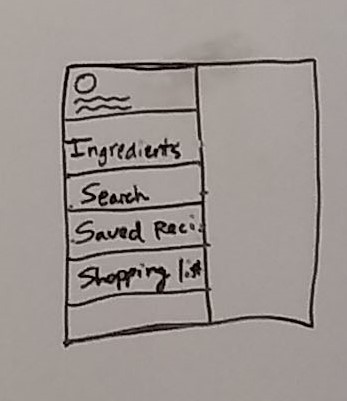 Ingredients
Search
Saved Reci
Shopping list